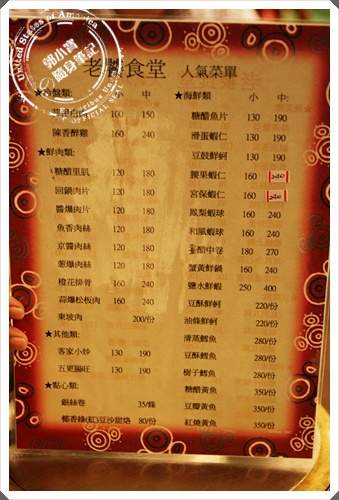 United States of America
郭小寶
隨身筆記
OFFICIAL SEAL
食堂 人氣菜單
盤類: 小 中
100 150
陳香醉雞 160 240
★鮮肉類:
糖醋里肌 120 180
回鍋肉片 120 180
醬爆肉片 120 180
魚香肉絲 120 180
京醬肉絲 120 180
蔥爆肉絲 120 180
橙花排骨 160 240
蒜爆松板肉 160 240
東坡肉 200/份
★其他類:
客家小炒 130 190
五更腸旺 130 190
★點心類:
銀絲卷 35/條
椰香綠(紅)豆沙甜烙 80/份
★海鮮類 小 中:
糖醋魚片 130 190
滑蛋蝦仁 130 190
豆鼓鮮蚵 130 190
腰果蝦仁 160 240
宮保蝦仁 160 240
鳳梨蝦球 160 240
和風蝦球 160 240
醋中卷 180 270
蟹黃鮮鍋 160 240
鹽水鮮蝦 250 400
豆酥鮮蚵 220/份
油條鮮蚵 220/份
清蒸鱈魚 280/份
豆酥鱈魚 280/份
樹子鱈魚 280/份
糖醋黃魚 350/份
豆瓣黃魚 350/份
紅燒黃魚 350/份